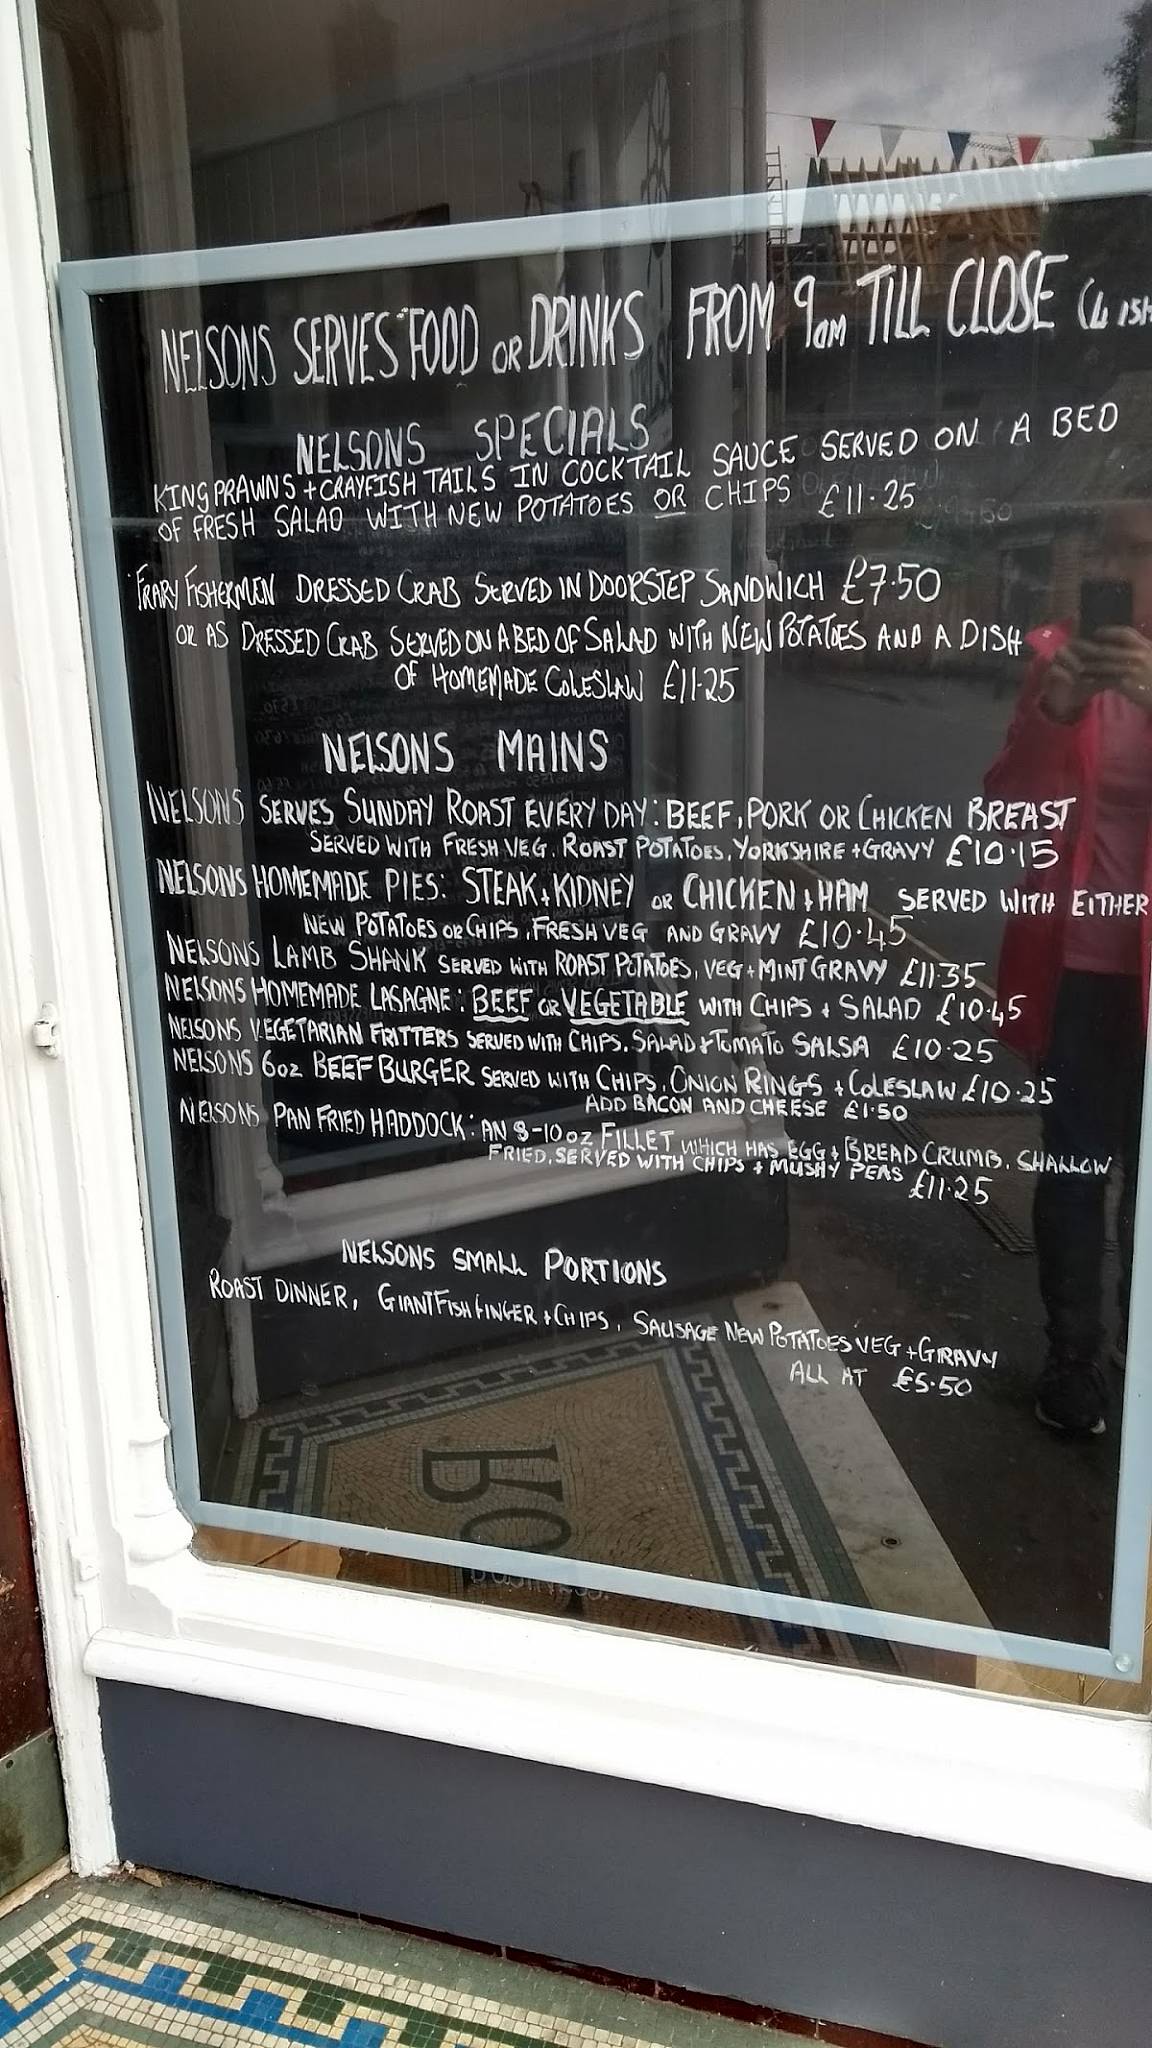 NELSONS SERVES FOOD OR DRINKS FROM 9am TILL CLOSE (4ISH
NELSONS SPECIALS
KING PRAWNS + CRAYFISH TAILS IN COCKTAIL SAUCE SERVED ON A BED
OF FRESH SALAD WITH NEW POTATOES OR CHIPS £11.25
FRARY FISHERMEN DRESSED CRAB SERVED IN DOORSTEP SANDWICH £7.50
OR AS DRESSED CRAB SERVED ON A BED OF SALAD WITH NEW POTATOES AND A DISH
OF HOMEMADE COLESLAW £11.25
NELSONS MAINS
NELSONS SERVES SUNDAY ROAST EVERY DAY: BEEF, PORK OR CHICKEN BREAST
SERVED WITH FRESH VEG, ROAST POTATOES, YORKSHIRE + GRAVY £10.15
NELSONS HOMEMADE PIES: STEAK + KIDNEY OR CHICKEN + HAM SERVED WITH EITHER
NEW POTATOES OR CHIPS, FRESH VEG AND GRAVY £10.45
NELSONS LAMB SHANK SERVED WITH ROAST POTATOES, VEG + MINT GRAVY £11.35
NELSONS HOMEMADE LASAGNE: BEEF OR VEGETABLE WITH CHIPS + SALAD £10.45
NELSONS VEGETARIAN FRITTERS SERVED WITH CHIPS, SALAD + TOMATO SALSA £10.25
NELSONS 6oz BEEF BURGER SERVED WITH CHIPS, ONION RINGS + COLESLAW £10.25
ADD BACON AND CHEESE £1.50
NELSONS PAN FRIED HADDOCK: AN 8-10oz FILLET WHICH HAS EGG + BREAD CRUMB, SHALLOW
FRIED, SERVED WITH CHIPS + MUSHY PEAS £11.25
NELSONS SMALL PORTIONS
ROAST DINNER, GIANT FISH FINGER + CHIPS, SAUSAGE NEW POTATOES VEG + GRAVY
ALL AT £5.50